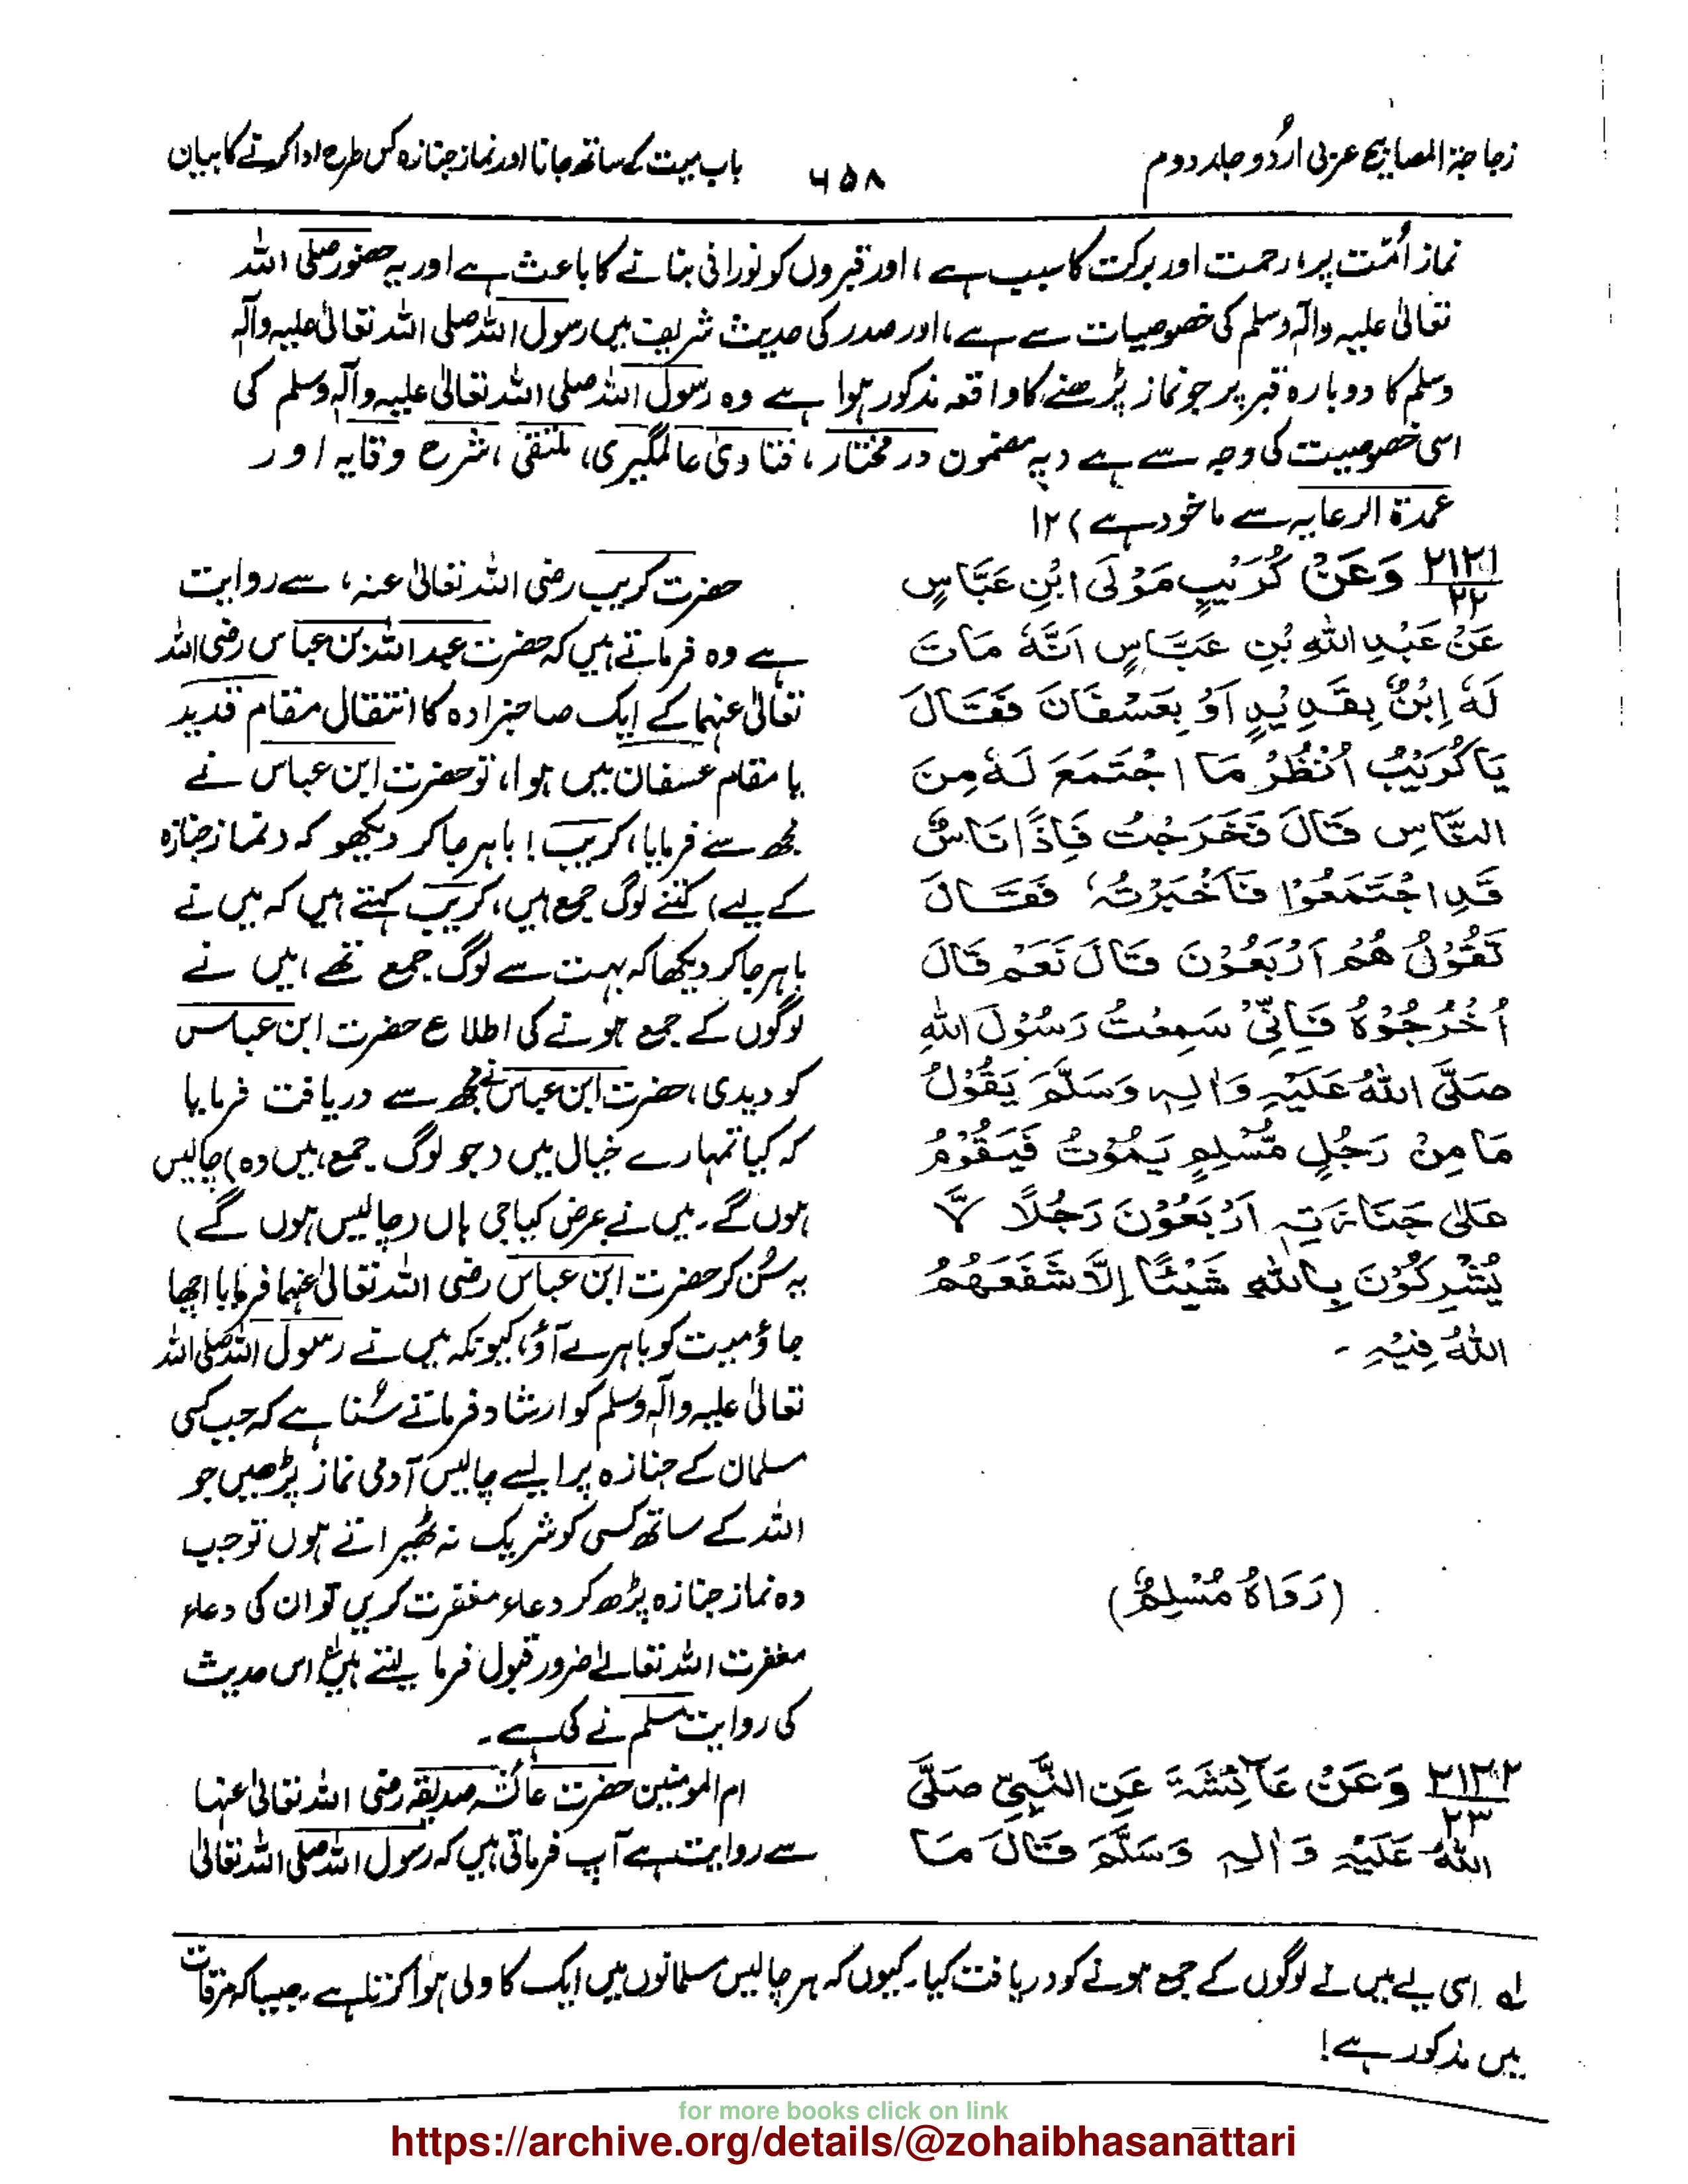 زجاجۃ المصابیح عربی اردُو جلد دوم
۶۵۸
باب میت کے ساتھ جانا اور نماز جنازہ کس طرح ادا کرنے کا بیان
نماز اُمّت پر، رحمت اور برکت کا سبب ہے، اور قبروں کو نورانی بنانے کا باعث ہے اور یہ حضور صلی اللہ
تعالیٰ علیہ وآلہٖ وسلم کی خصوصیات سے ہے، اور صدر کی حدیث شریف میں رسول اللہ صلی اللہ تعالیٰ علیہ وآلہٖ
وسلم کا دوبارہ قبر پر جو نماز پڑھنے کا واقعہ مذکور ہوا ہے وہ رسول اللہ صلی اللہ تعالیٰ علیہ وآلہٖ وسلم کی
اسی خصوصیت کی وجہ سے ہے (یہ مضمون در مختار، فتاویٰ عالمگیری، ملتقی، شرح وقایہ اور
عمدۃ الرعایہ سے ماخوذ ہے) ۱۲
۲۱۲۱
۲۲
وَعَنْ كُرَيْبٍ مَوْلَى ابْنِ عَبَّاسٍ
عَنْ عَبْدِ اللهِ بْنِ عَبَّاسٍ اَنَّهٗ مَاتَ
لَهٗ اِبْنٌ بِقَدِيْدٍ اَوْ بِعَسْفَانَ فَقَالَ
يَا كُرَيْبُ اُنْظُرْ مَا اجْتَمَعَ لَهٗ مِنَ
النَّاسِ قَالَ فَخَرَجْتُ فَاِذَا نَاسٌ
قَدِ اجْتَمَعُوْا فَاَخْبَرْتُهٗ فَقَالَ
تَقُوْلُ هُمْ اَرْبَعُوْنَ قَالَ نَعَمْ قَالَ
اُخْرُجُوْهُ فَاِنِّيْ سَمِعْتُ رَسُوْلَ اللهِ
صَلَّى اللهُ عَلَيْهِ وَاٰلِهٖ وَسَلَّمَ يَقُوْلُ
مَا مِنْ رَجُلٍ مُّسْلِمٍ يَمُوْتُ فَيَقُوْمُ
عَلٰى جَنَازَتِهٖ اَرْبَعُوْنَ رَجُلًا لَّا
يُشْرِكُوْنَ بِاللهِ شَيْئًا اِلَّا شَفَعَهُمُ
اللهُ فِيْهِ ۔
(رَوَاهُ مُسْلِمٌ)
حضرت کریب رضی اللہ تعالیٰ عنہ، سے روایت
ہے وہ فرماتے ہیں کہ حضرت عبداللہ بن عباس رضی اللہ
تعالیٰ عنہما کے ایک صاحبزادہ کا انتقال مقام قدید
یا مقام عسفان میں ہوا، تو حضرت ابن عباس نے
مجھ سے فرمایا، کریب! باہر جا کر دیکھو کہ (نماز جنازہ
کے لیے) کتنے لوگ جمع ہیں، کریب کہتے ہیں کہ میں نے
باہر جا کر دیکھا کہ بہت سے لوگ جمع تھے، میں نے
لوگوں کے جمع ہونے کی اطلاع حضرت ابن عباس
کو دیدی، حضرت ابن عباس نے مجھ سے دریافت فرمایا
کہ کیا تمہارے خیال میں (جو لوگ جمع ہیں وہ) چالیس
ہوں گے۔ میں نے عرض کیا جی ہاں (چالیس ہوں گے)
یہ سُن کر حضرت ابن عباس رضی اللہ تعالیٰ عنہما فرمایا اچھا
جاؤ میت کو باہر لے آؤ، کیونکہ میں نے رسول اللہ صلی اللہ
تعالیٰ علیہ وآلہٖ وسلم کو ارشاد فرماتے سُنا ہے کہ جب کسی
مسلمان کے جنازہ پر ایسے چالیس آدمی نماز پڑھیں جو
اللہ کے ساتھ کسی کو شریک نہ ٹھیراتے ہوں تو جب
وہ نماز جنازہ پڑھ کر دعاء مغفرت کریں تو ان کی دعاء
مغفرت اللہ تعالےٰ ضرور قبول فرما لیتے ہیں اس حدیث
کی روایت مسلم نے کی ہے۔
۲۱۲۲
۲۳
وَعَنْ عَائِشَةَ عَنِ النَّبِيِّ صَلَّى
اللهُ عَلَيْهِ وَاٰلِهٖ وَسَلَّمَ قَالَ مَا
ام المومنین حضرت عائشہ صدیقہ رضی اللہ تعالیٰ عنہا
سے روایت ہے آپ فرماتی ہیں کہ رسول اللہ صلی اللہ تعالیٰ
لہ اسی لیے میں نے لوگوں کے جمع ہونے کو دریافت کیا۔ کیوں کہ ہر چالیس مسلمانوں میں ایک کا ولی ہوا کرتا ہے۔ جیسا کہ مرقات
میں مذکور ہے!
for more books click on link
https://archive.org/details/@zohaibhasanattari